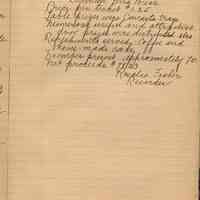 Price per ticket $1.25
Table prizes were Concrete Trays
Numerous useful and attractive
door prizes were distributed also
Refreshments served, Coffee and
Home-made cake
Number present approximately 70
Net proceeds $71.83
Recorder